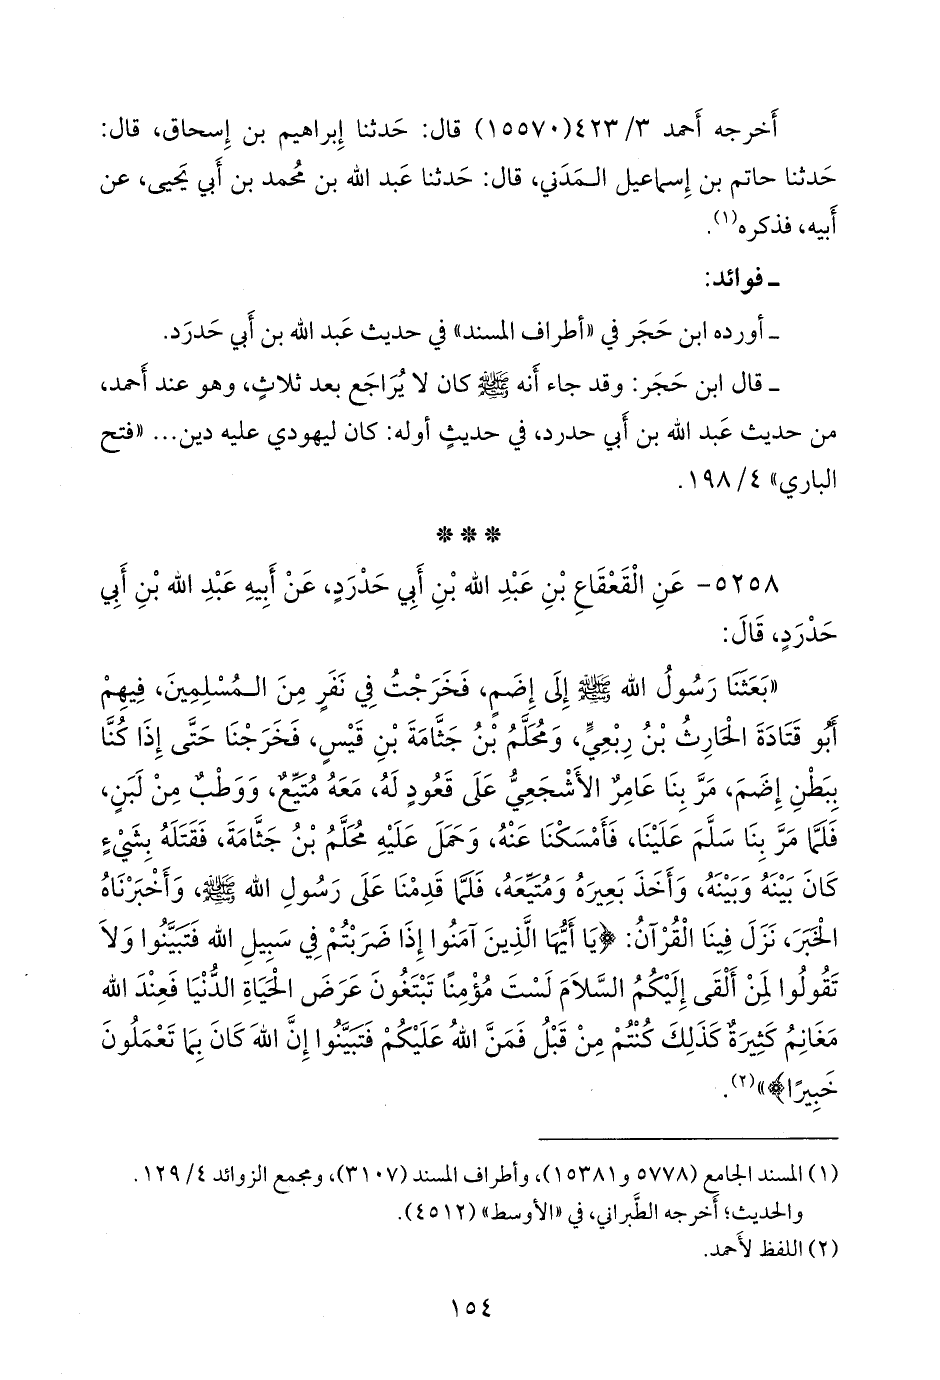 أَخرجه أَحمد ٣/ ٤٢٣(١٥٥٧٠) قال: حَدثنا إِبراهيم بن إِسحاق، قال:
حَدثنا حاتم بن إِسماعيل الـمَدَني، قال: حَدثنا عَبد الله بن مُحمد بن أَبي يَحيى، عن
أَبيه، فذكره(١).
ـ فوائد:
ـ أَورده ابن حَجَر في «أطراف المسند» في حديث عَبد الله بن أَبي حَدرَد.
ـ قال ابن حَجَر: وقد جاء أَنه ﷺ كان لا يُرَاجَع بعد ثلاثٍ، وهو عند أَحمد،
من حديث عَبد الله بن أَبي حدرد، في حديثٍ أوله: كان ليهودي عليه دين... «فتح
الباري» ٤/ ١٩٨.
* * *
٥٢٥٨- عَنِ الْقَعْقَاعِ بْنِ عَبْدِ الله بْنِ أَبِي حَدْرَدٍ، عَنْ أَبِيهِ عَبْدِ الله بْنِ أَبِي
حَدْرَدٍ، قَالَ:
«بَعَثَنَا رَسُولُ الله ﷺ إِلَى إِضَمٍ، فَخَرَجْتُ فِي نَفَرٍ مِنَ الـمُسْلِمِينَ، فِيهِمْ
أَبُو قَتَادَةَ الْحَارِثُ بْنُ رِبْعِيٍّ، وَمُحَلَّمُ بْنُ جَثَّامَةَ بْنِ قَيْسٍ، فَخَرَجْنَا حَتَّى إِذَا كُنَّا
بِبَطْنِ إِضَمَ، مَرَّ بِنَا عَامِرٌ الأَشْجَعِيُّ عَلَى قَعُودٍ لَهُ، مَعَهُ مُتَيِّعٌ، وَوَطْبٌ مِنْ لَبَنٍ،
فَلَمَّا مَرَّ بِنَا سَلَّمَ عَلَيْنَا، فَأَمْسَكْنَا عَنْهُ، وَحَمَلَ عَلَيْهِ مُحَلَّمُ بْنُ جَثَّامَةَ، فَقَتَلَهُ بِشَيْءٍ
كَانَ بَيْنَهُ وَبَيْنَهُ، وَأَخَذَ بَعِيرَهُ وَمُتَيِّعَهُ، فَلَمَّا قَدِمْنَا عَلَى رَسُولِ الله ﷺ، وَأَخْبَرْنَاهُ
الْخَبَرَ، نَزَلَ فِينَا الْقُرْآنُ: ﴿يَا أَيُّهَا الَّذِينَ آمَنُوا إِذَا ضَرَبْتُمْ فِي سَبِيلِ الله فَتَبَيَّنُوا وَلاَ
تَقُولُوا لِمَنْ أَلْقَى إِلَيْكُمُ السَّلاَمَ لَسْتَ مُؤْمِنًا تَبْتَغُونَ عَرَضَ الْحَيَاةِ الدُّنْيَا فَعِنْدَ الله
مَغَانِمُ كَثِيرَةٌ كَذَلِكَ كُنْتُمْ مِنْ قَبْلُ فَمَنَّ اللهُ عَلَيْكُمْ فَتَبَيَّنُوا إِنَّ اللهَ كَانَ بِمَا تَعْمَلُونَ
خَبِيرًا﴾»(٢).
(١) المسند الجامع (٥٧٧٨ و١٥٣٨١)، وأطراف المسند (٣١٠٧)، ومجمع الزوائد ٤/ ١٢٩.
والحديث؛ أَخرجه الطَّبراني، في «الأوسط» (٤٥١٢).
(٢) اللفظ لأَحمد.
١٥٤